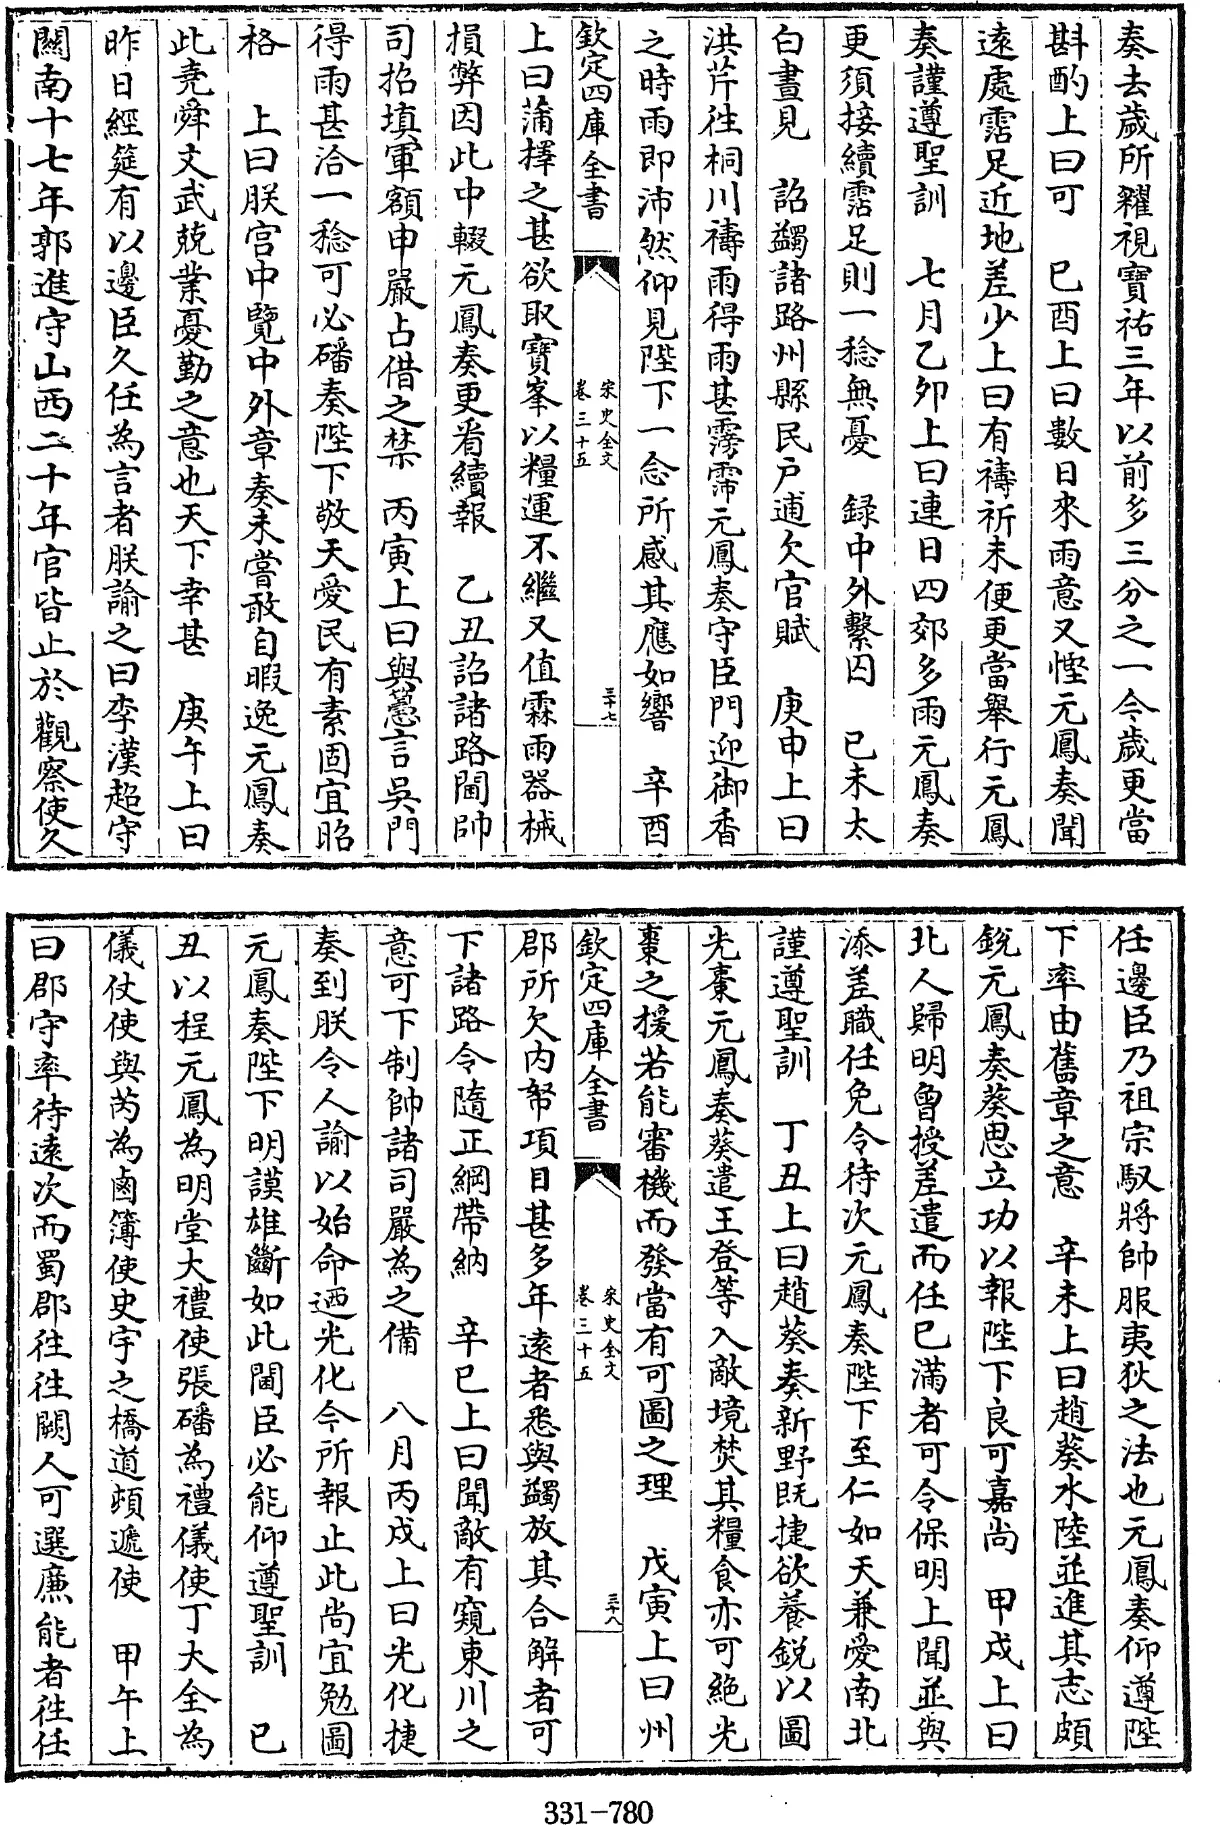 奏去歲所糴視寶祐三年以前多三分之一今歲更當
斟酌上曰可　己酉上曰數日來雨意又慳元鳳奏聞
遠處霑足近地差少上曰有禱祈未便更當舉行元鳳
奏謹遵聖訓　七月乙卯上曰連日四郊多雨元鳳奏
更須接續霑足則一稔無憂　録中外繫囚　己未太
白晝見　詔蠲諸路州縣民戸逋欠官賦　庚申上曰
洪芹往桐川禱雨得雨甚霶霈元鳳奏守臣門迎御香
之時雨即沛然仰見陛下一念所感其應如響　辛酉
欽定四庫全書
宋史全文
卷三十五
三十七
上曰蒲擇之甚欲取寶峯以糧運不繼又值霖雨器械
損弊因此中輟元鳳奏更看續報　乙丑詔諸路閫帥
司招填軍額申嚴占借之禁　丙寅上曰與𥳑言吳門
得雨甚洽一稔可必磻奏陛下敬天愛民有素固宜昭
格　上曰朕宫中覽中外章奏未嘗敢自暇逸元鳳奏
此堯舜文武兢業憂勤之意也天下幸甚　庚午上曰
昨日經筵有以邊臣久任為言者朕諭之曰李漢超守
關南十七年郭進守山西二十年官皆止於觀察使久
任邊臣乃祖宗馭將帥服夷狄之法也元鳳奏仰遵陛
下率由舊章之意　辛未上曰趙葵水陸並進其志頗
鋭元鳳奏葵思立功以報陛下良可嘉尚　甲戌上曰
北人歸明曾授差遣而任已滿者可令保明上聞並與
添差職任免令待次元鳳奏陛下至仁如天兼愛南北
謹遵聖訓　丁丑上曰趙葵奏新野既捷欲養鋭以圖
光棗元鳳奏葵遣王登等入敵境焚其糧食亦可絶光
棗之援若能審機而發當有可圖之理　戊寅上曰州
欽定四庫全書
宋史全文
卷三十五
三十八
郡所欠内帑項目甚多年遠者悉與蠲放其合解者可
下諸路令隨正綱帶納　辛巳上曰聞敵有窺東川之
意可下制帥諸司嚴為之備　八月丙戌上曰光化捷
奏到朕令人諭以始命廼光化今所報止此尚宜勉圖
元鳳奏陛下明謨雄斷如此閫臣必能仰遵聖訓　已
丑以程元鳳為明堂大禮使張磻為禮儀使丁大全為
儀仗使與芮為鹵簿使史宇之橋道頓遞使　甲午上
曰郡守率待遠次而蜀郡往往闕人可選廉能者往任
331-780